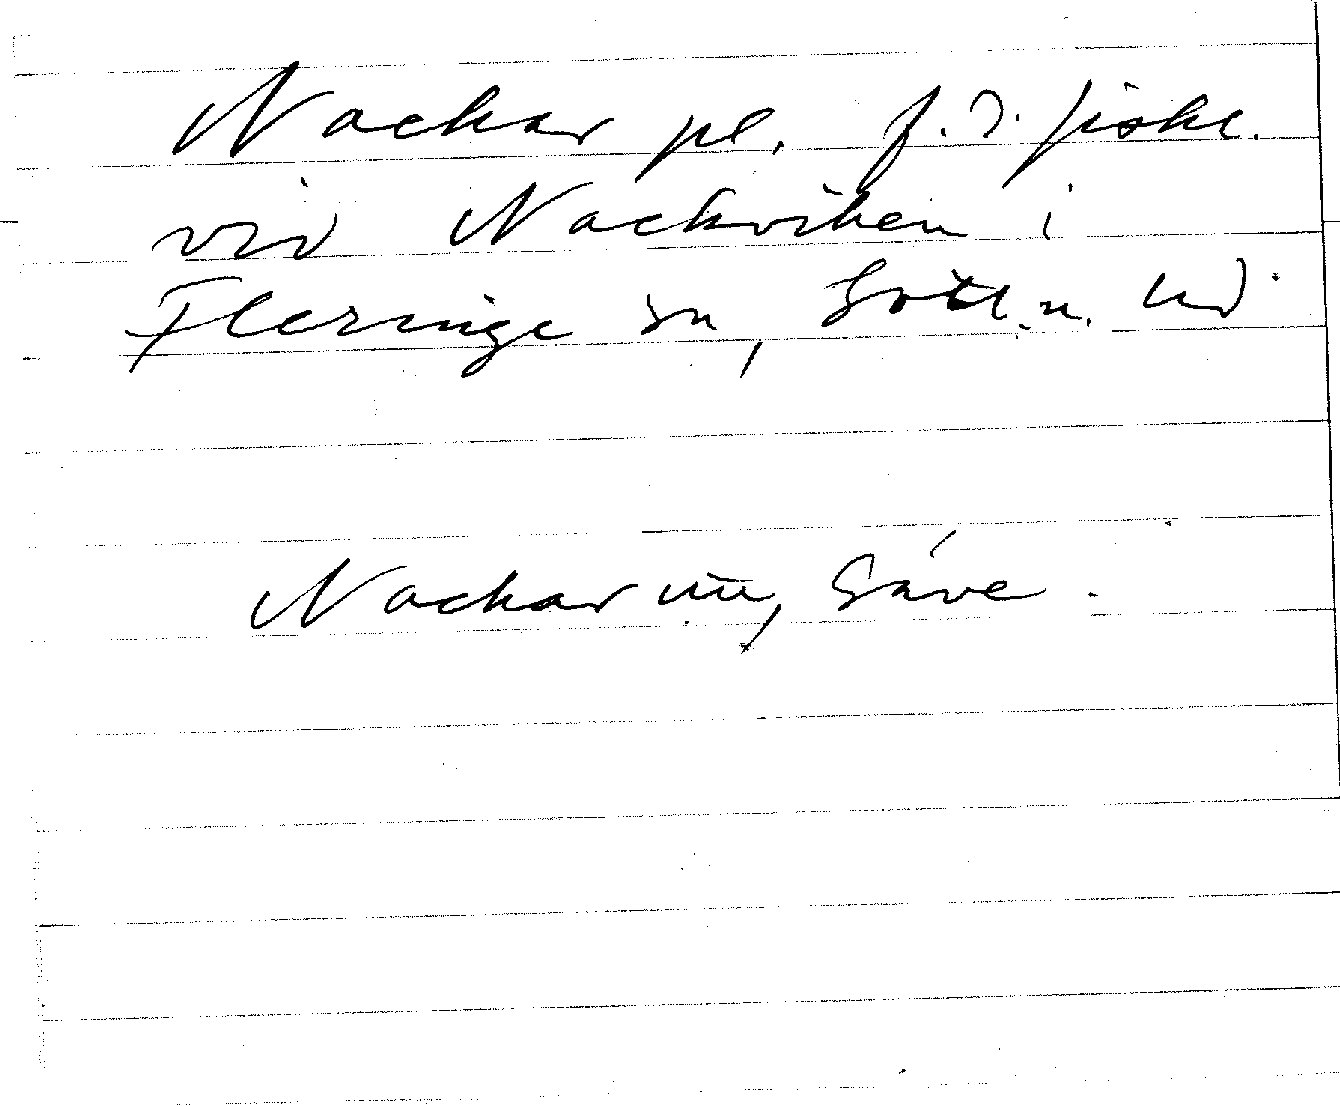 Nackar pl. f.d. fiskl.
vid Nackviken i
Fleringe sn, Gotl. n. hd
Nackar , Säve